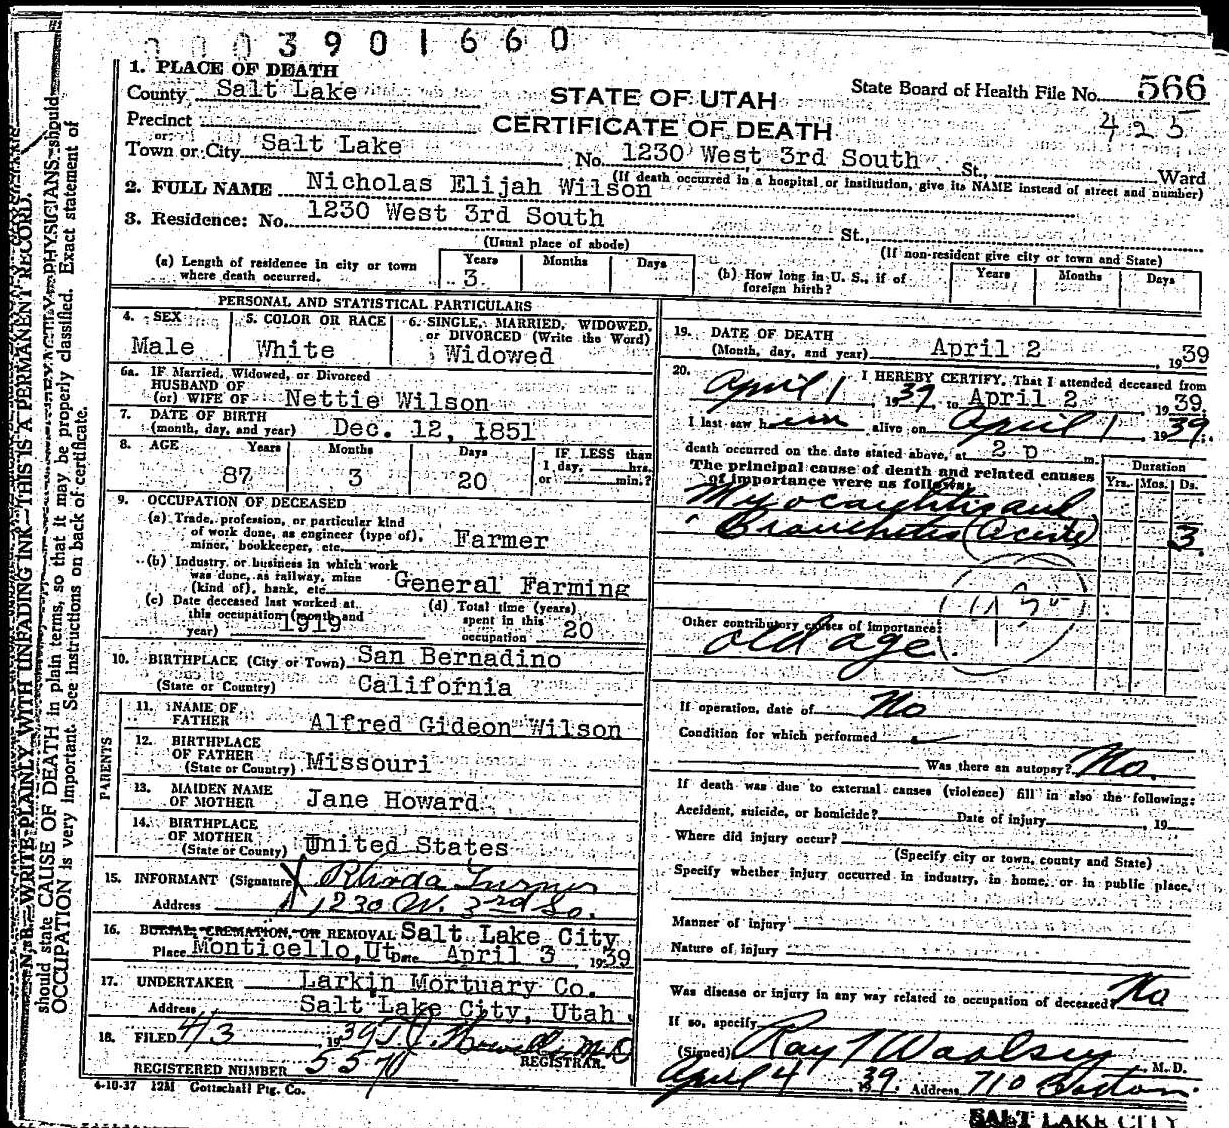 0003901660
1. PLACE OF DEATH
County Salt Lake
STATE OF UTAH
State Board of Health File No. 566
Precinct
or
CERTIFICATE OF DEATH
425
Town or City Salt Lake No. 1230 West 3rd South St., Ward
(If death occurred in a hospital or institution, give its NAME instead of street and number)
2. FULL NAME Nicholas Elijah Wilson
3. Residence: No. 1230 West 3rd South St.,
(Usual place of abode) (If non-resident give city or town and State)
(a) Length of residence in city or town where death occurred. Years 3 Months Days
(b) How long in U. S., if of foreign birth? Years Months Days
PERSONAL AND STATISTICAL PARTICULARS
4. SEX Male
5. COLOR OR RACE White
6. SINGLE, MARRIED, WIDOWED, or DIVORCED (Write the Word) Widowed
6a. IF Married, Widowed, or Divorced
HUSBAND OF
(or) WIFE OF Nettie Wilson
7. DATE OF BIRTH
(month, day, and year) Dec. 12, 1851
8. AGE Years Months Days IF LESS than
1 day, hrs.
87 3 20 or min.?
9. OCCUPATION OF DECEASED
(a) Trade, profession, or particular kind
of work done, as engineer (type of),
miner, bookkeeper, etc. Farmer
(b) Industry or business in which work
was done, as railway, mine
(kind of), bank, etc. General Farming
(c) Date deceased last worked at
this occupation (month and
year) 1919
(d) Total time (years)
spent in this
occupation 20
10. BIRTHPLACE (City or Town) San Bernadino
(State or Country) California
PARENTS
11. NAME OF
FATHER Alfred Gideon Wilson
12. BIRTHPLACE
OF FATHER
(State or Country) Missouri
13. MAIDEN NAME
OF MOTHER Jane Howard
14. BIRTHPLACE
OF MOTHER
(State or Country) United States
15. INFORMANT (Signature) X Rhoda Turner
Address 1230 W. 3rd So.
16. BURIAL, CREMATION, OR REMOVAL Salt Lake City
Place Monticello, Ut Date April 3, 1939
17. UNDERTAKER Larkin Mortuary Co.
Address Salt Lake City, Utah
18. FILED 4/3 1939 M.D.
REGISTRAR.
REGISTERED NUMBER 557
4-10-37 12M Gottschall Ptg. Co.
19. DATE OF DEATH
(Month, day, and year) April 2 1939
20. I HEREBY CERTIFY, That I attended deceased from
April 1 1939, to April 2, 1939.
I last saw him alive on April 1, 1939.
death occurred on the date stated above, at 2 p m.
The principal cause of death and related causes
of importance were as follows:
Duration
Yrs. Mos. Ds.
Myocarditis and
Bronchitis (acute) 3.
Other contributory causes of importance:
old age.
If operation, date of No
Condition for which performed
Was there an autopsy? No.
If death was due to external causes (violence) fill in also the following:
Accident, suicide, or homicide? Date of injury , 19
Where did injury occur?
(Specify city or town, county and State)
Specify whether injury occurred in industry, in home, or in public place.
Manner of injury
Nature of injury
Was disease or injury in any way related to occupation of deceased? No
If so, specify
(Signed) Ray T Woolsey M. D.
April 4 1939. Address 710 Boston.
SALT LAKE CITY
N. B.—WRITE PLAINLY, WITH UNFADING INK—THIS IS A PERMANENT RECORD.
PHYSICIANS should
should state CAUSE OF DEATH in plain terms, so that it may be properly classified. Exact statement of
OCCUPATION is very important. See instructions on back of certificate.